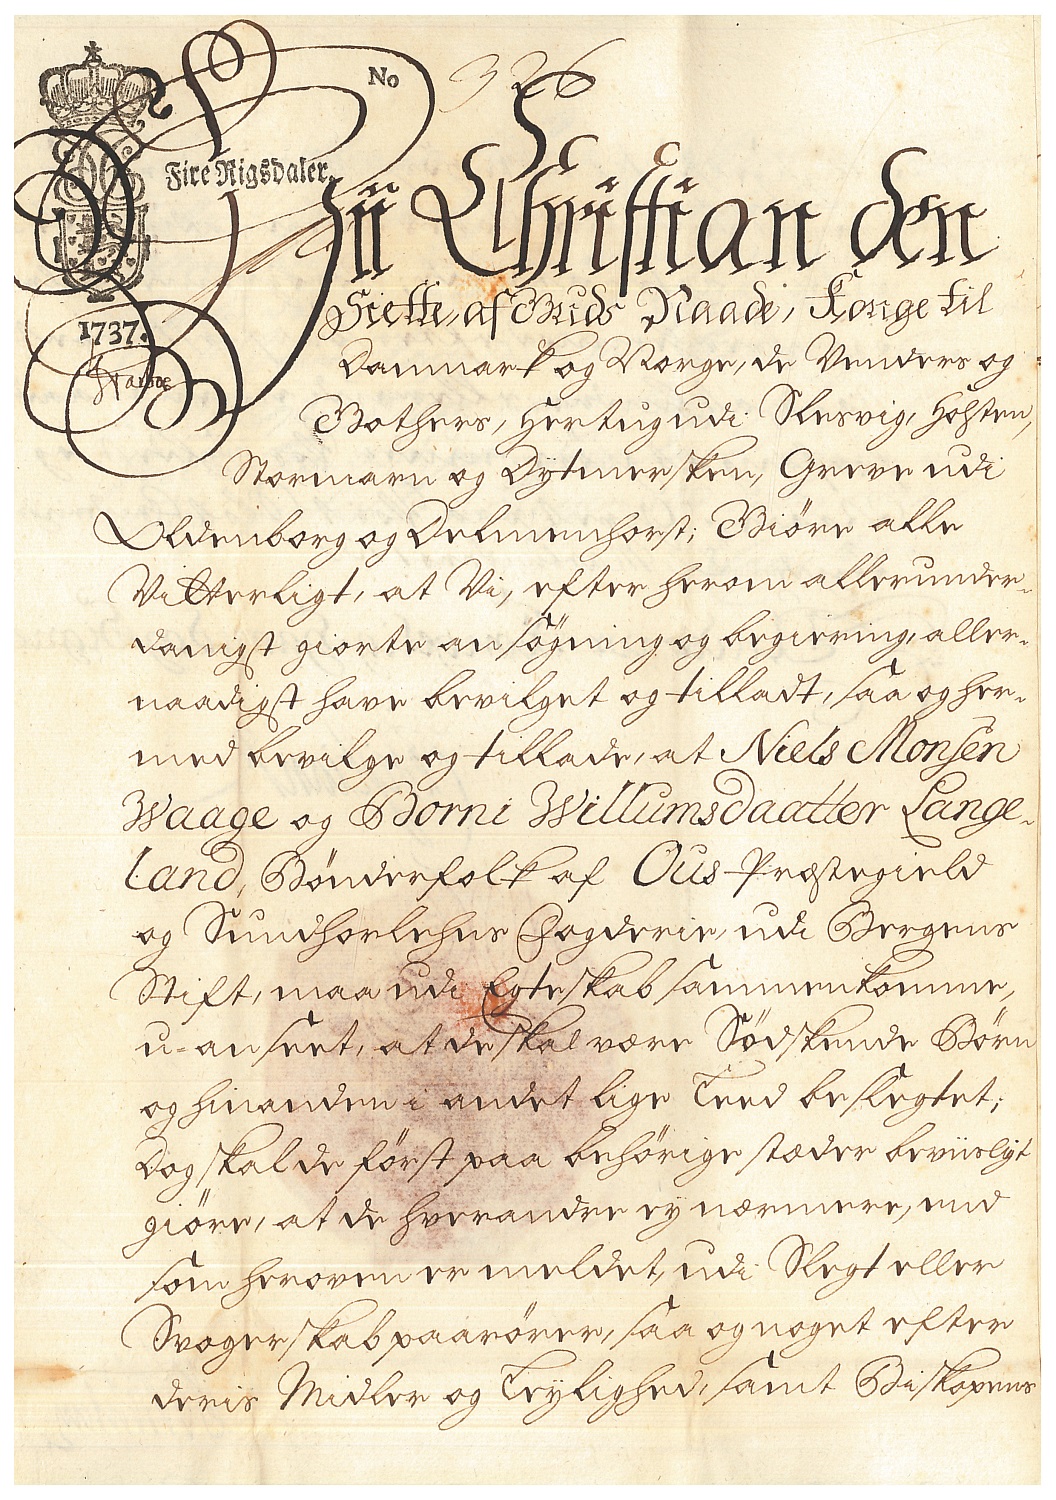 No 326
Fire Rigsdaler.
1737.
Vii Christian den
Siette, af Guds Naade, Konge til
Danmark og Norge, de Venders og
Gothers, Hertug udi Slesvig, Holsten,
Stormarn og Dytmersken, Greve udi
Oldenborg og Delmenhorst; Giöre alle
Vitterligt, at Vi, efter herom allerunder-
danigst giorte ansögning og begiering, aller-
naadigst have bevilget og tilladt, saa og her-
med bevilge og tillade, at Niels Monsen
Waage og Borni Willumsdaatter Lange-
land, Bönderfolk af Ous Præstegield
og Sundhorlehns Fogderie, udi Bergens
Stift, maa udi Egteskab sammenkomme,
u-anseet, at de skal være Södskende Börn
og hinanden i andet lige Leed beslegtet;
Dog skal de först paa behörige stæder beviisligt
giöre, at de hverandre ey nærmere, end
som heroven er meldet, udi Slegt eller
Svogerskab paarörer, saa og noget efter
deris Midler og Leylighed, samt Biskopens